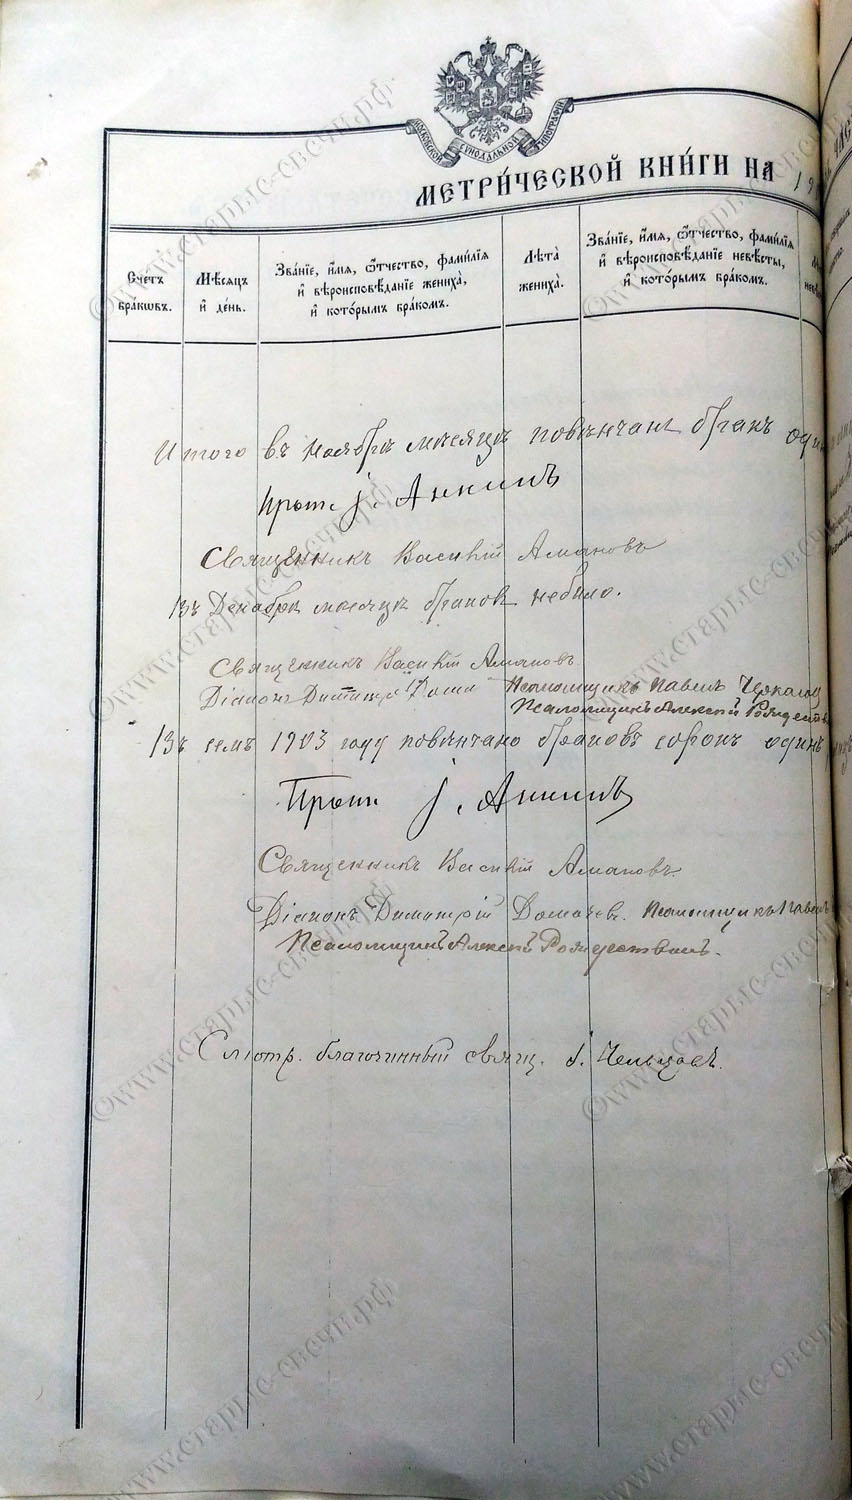 МОСКОВСКОЙ СѴНОДАЛЬНОЙ ТИПОГРАФІИ
МЕТРИ́ЧЕСКОЙ КНИ́ГИ НА 19
Сче́тъ бра́кѡвъ.
Мѣ́сяцъ и҆ де́нь.
Зва́нїе, и҆́мя, ѻ҆́тчество, фами́лїя и҆ вѣроисповѣ́данїе жениха̀, и҆ кото́рымъ бра́комъ.
Лѣ́та жениха̀.
Зва́нїе, и҆́мя, ѻ҆́тчество, фами́лїя и҆ вѣроисповѣ́данїе невѣ́сты, и҆ кото́рымъ бра́комъ.
Итого въ ноябрѣ мѣсяцѣ повѣнчанъ бракъ один
Прот. І.
Священникъ Василій Амановъ
Въ Декабрѣ мѣсяцѣ браковъ небыло.
Священникъ Василій Амановъ.
Діаконъ Димитрій Псаломщикъ Павелъ
Псаломщикъ Алексѣй Рождеств
Въ семъ 1903 году повѣнчано браковъ сорокъ одинъ
Прот. І.
Священникъ Василій Амановъ.
Діаконъ Димитрій Псаломщикъ Павелъ
Псаломщикъ Алексѣй Рождественъ.
Смотр. благочинный свящ. І. Чельцовъ.
©www.старые-свечи.рф